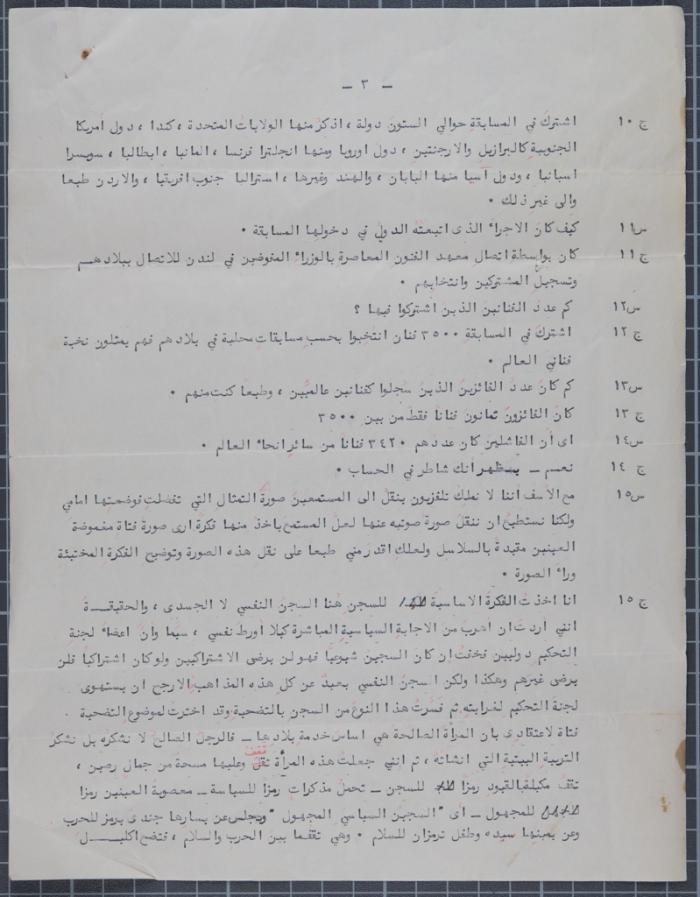 - ٣ -
ج ١٠ اشترك في المسابقة حوالي الستون دولة ، اذكر منها الولايات المتحدة ، كندا ، دول امريكا
الجنوبية كالبرازيل والارجنتين ، دول اوروبا ومنها انجلترا فرنسا ، المانيا ، ايطاليا ، سويسرا
اسبانيا ، ودول آسيا منها اليابان ، والهند وغيرها ، استراليا جنوب افريقيا ، والاردن طبعا
والى غير ذلك .
س١١ كيف كان الاجراء الذى اتبعته الدول في دخولها المسابقة .
ج ١١ كان بواسطة اتصال معهد الفنون المعاصرة بالوزراء المفوضين في لندن للاتصال ببلادهم
وتسجيل المشتركين وانتخابهم .
س١٢ كم عدد الفنانين الذين اشتركوا فيها ؟
ج ١٢ اشترك في المسابقة ٣٥٠٠ فنان انتخبوا بحسب مسابقات محلية في بلادهم فهم يمثلون نخبة
فناني العالم .
س١٣ كم كان عدد الفائزين الذين سجلوا كفنانين عالميين ، وطبعا كنت منهم .
ج ١٣ كان الفائزون ثمانون فنانا فقط من بين ٣٥٠٠
س١٤ اى ان الفاشلين كان عددهم ٣٤٢٠ فنانا من سائر انحاء العالم .
ج ١٤ نعم - يظهر انك شاطر في الحساب .
س١٥ مع الاسف اننا لا نملك تلفزيون ينقل الى المستمعين صورة التمثال التي تفضلت فوضعتها امامي
ولكنا نستطيع ان ننقل صورة صوتيه عنها لعل المستمع ياخذ منها فكرة ارى صورة فتاة مغموضة
العينين مقيدة بالسلاسل ولعلك اقدر مني طبعا على نقل هذه الصورة وتوضيح الفكرة المختبئة
وراء الصورة .
ج ١٥ انا اخذت الفكرة الاساسية للسجن هنا السجن النفسي لا الجسدى ، والحقيقة
انني اردت ان اهرب من الاجابة السياسية المباشرة كيلا اورط نفسي ، سيما وان اعضاء لجنة
التحكيم دوليين فخفت ان كان السجين شيوعيا فهو لن يرضى الاشتراكيين ولو كان اشتراكيا فلن
يرضى غيرهم وهكذا ولكن السجن النفسي بعيد عن كل هذه المذاهب الارجح ان يستهوى
لجنة التحكيم لغرابته ثم فسرت هذا النوع من السجن بالتضحية وقد اخترت لموضوع التضحية
فتاة لاعتقادى بان المرأة الصالحة هي اساس خدمة بلادها - فالرجل الصالح لا نشكره بل نشكر
التربية البيتية التي انشاته ، ثم انني جعلت هذه المرأة تقف وعليها مسحة من جمال رصين ،
تقف مكبلة بالقيود رمزا للسجن - تحمل مذكرات رمزا للسياسة - معصوبة العينين رمزا
للمجهول - اى " السجين السياسي المجهول " ويجلس عن يسارها جندى يرمز للحرب
وعن يمينها سيده وطفل ترمزان للسلام . وهي تقف ما بين الحرب والسلام ، فتضح اكليل